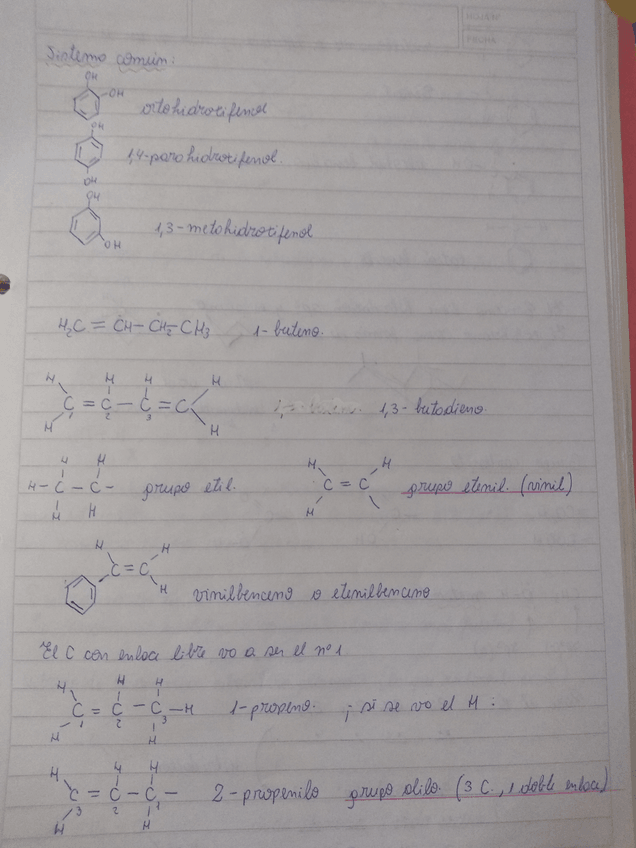 Sistema común:
OH
OH
ortohidroxifenol
OH
1,4-parahidroxifenol.
OH
OH
1,3-metahidroxifenol
OH
H₂C = CH – CH₂ – CH₃ 1-buteno.
H H H H
C = C – C = C 1,3-butadieno.
1 2 3
H H
H H H H
H – C – C – grupo etil. C = C grupo etenil. (vinil)
H H H
H H
C = C
H
vinilbenceno o etenilbenceno
El C con enlace libre va a ser el nº 1
H H H
C = C – C – H 1-propeno. ; si se va el H :
1 2 3
H H
H H H
C = C – C – 2-propenilo grupo alilo. (3 C., 1 doble enlace)
3 2 1
H H